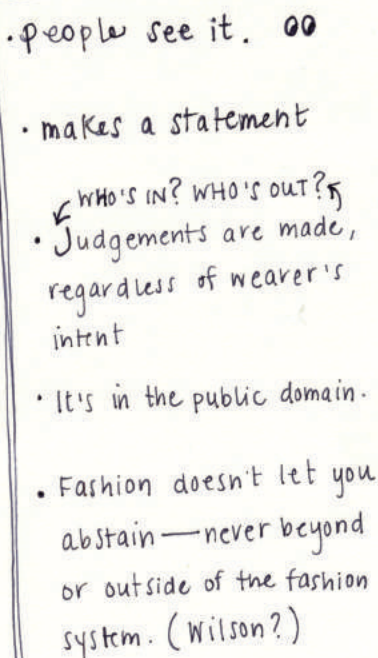 · people see it.
· makes a statement
WHO'S IN? WHO'S OUT?
· Judgements are made,
regardless of wearer's
intent
· It's in the public domain.
· Fashion doesn't let you
abstain—never beyond
or outside of the fashion
system. (Wilson?)